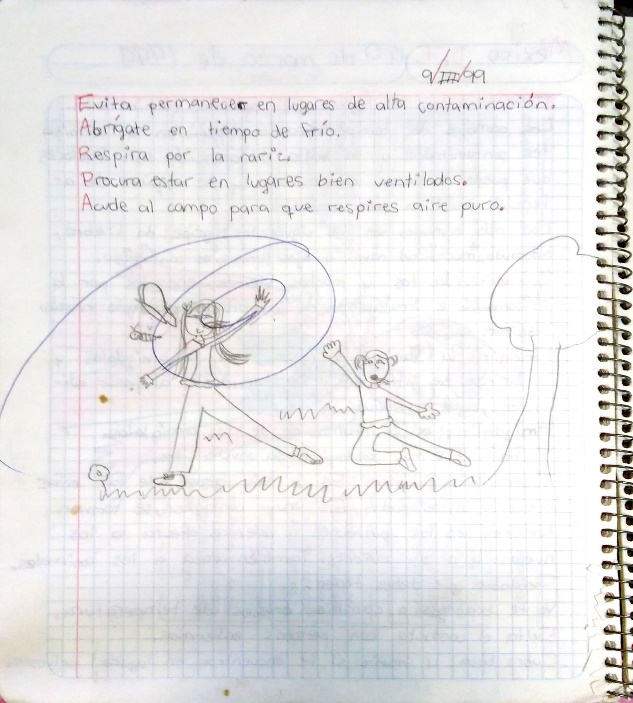 9/III/99
Evita permanecer en lugares de alta contaminación.
Abrígate en tiempo de frío.
Respira por la nariz.
Procura estar en lugares bien ventilados.
Acude al campo para que respires aire puro.